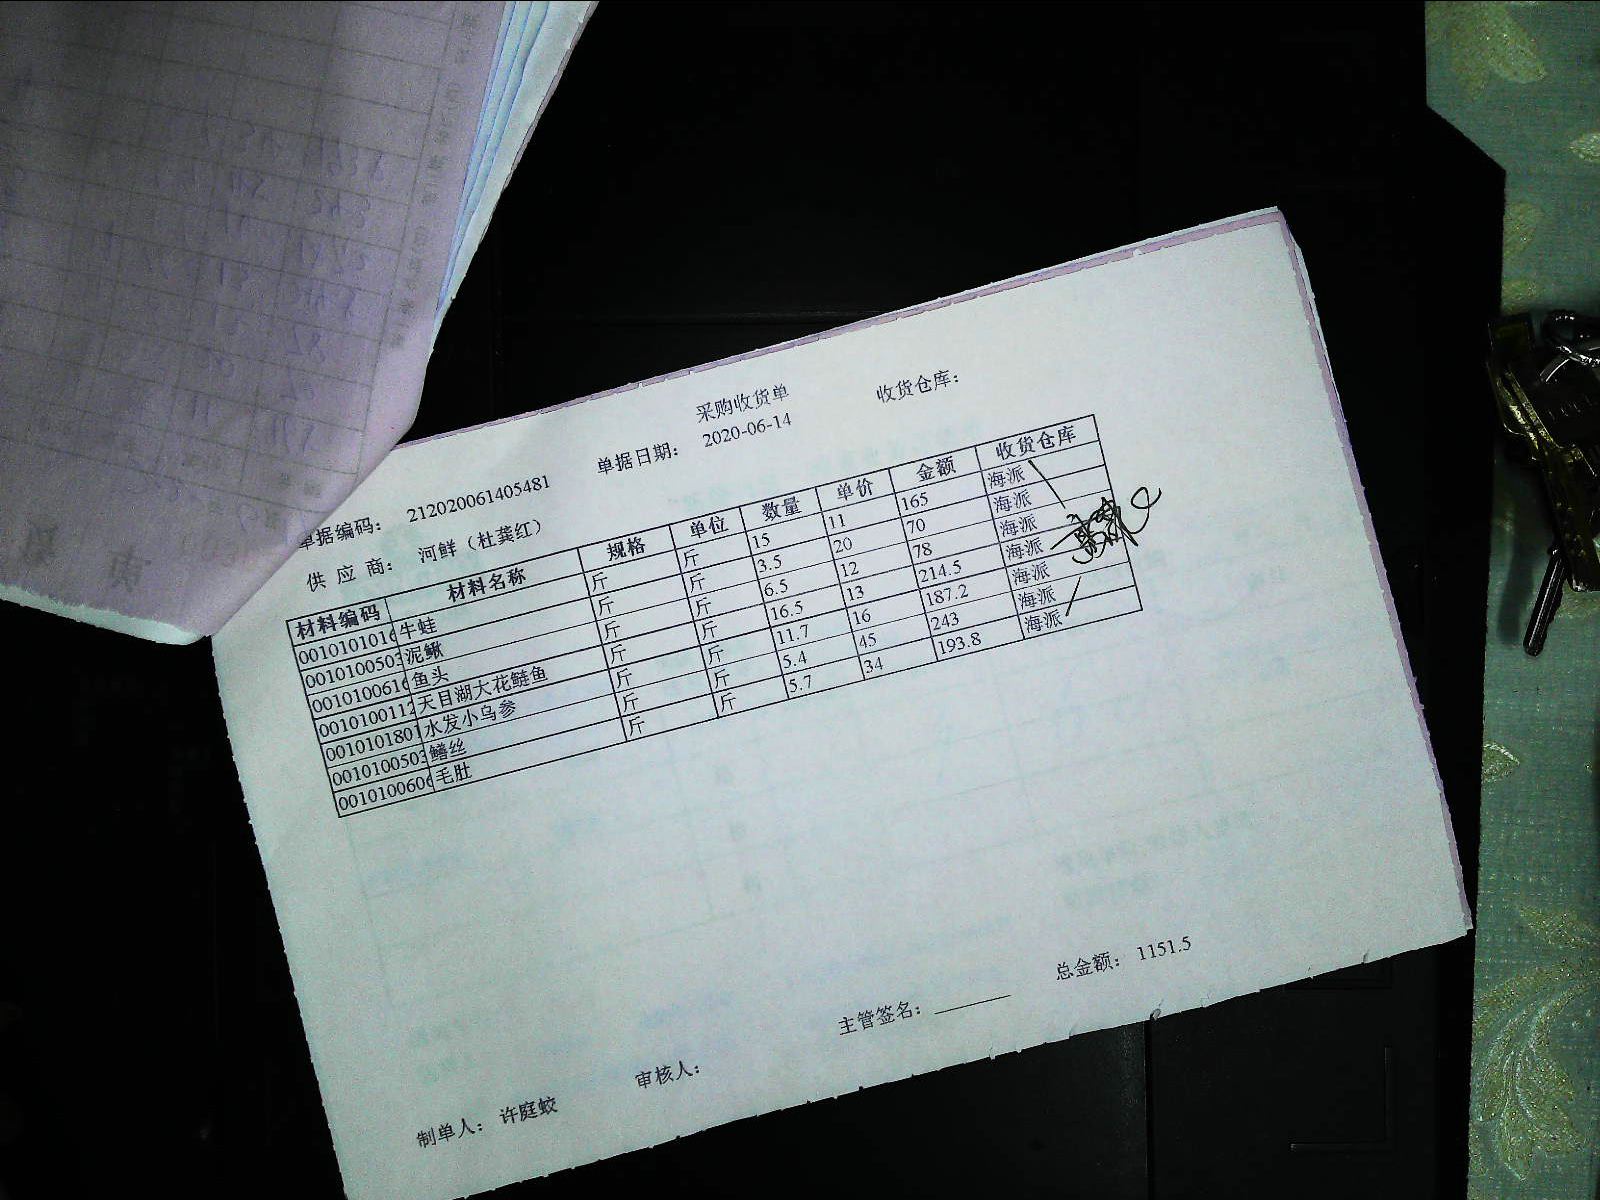 采购收货单 收货仓库：
单据编码： 212020061405481 单据日期： 2020-06-14
供 应 商： 河鲜（杜龚红）
材料编码 材料名称 规格 单位 数量 单价 金额 收货仓库
001010101 牛蛙 斤 斤 15 11 165 海派
001010050 泥鳅 斤 斤 3.5 20 70 海派
001010061 鱼头 斤 斤 6.5 12 78 海派
001010011 天目湖大花鲢鱼 斤 斤 16.5 13 214.5 海派
001010180 水发小乌参 斤 斤 11.7 16 187.2 海派
001010050 鳝丝 斤 斤 5.4 45 243 海派
001010060 毛肚 斤 斤 5.7 34 193.8 海派
总金额： 1151.5
制单人： 许庭蛟 审核人： 主管签名：